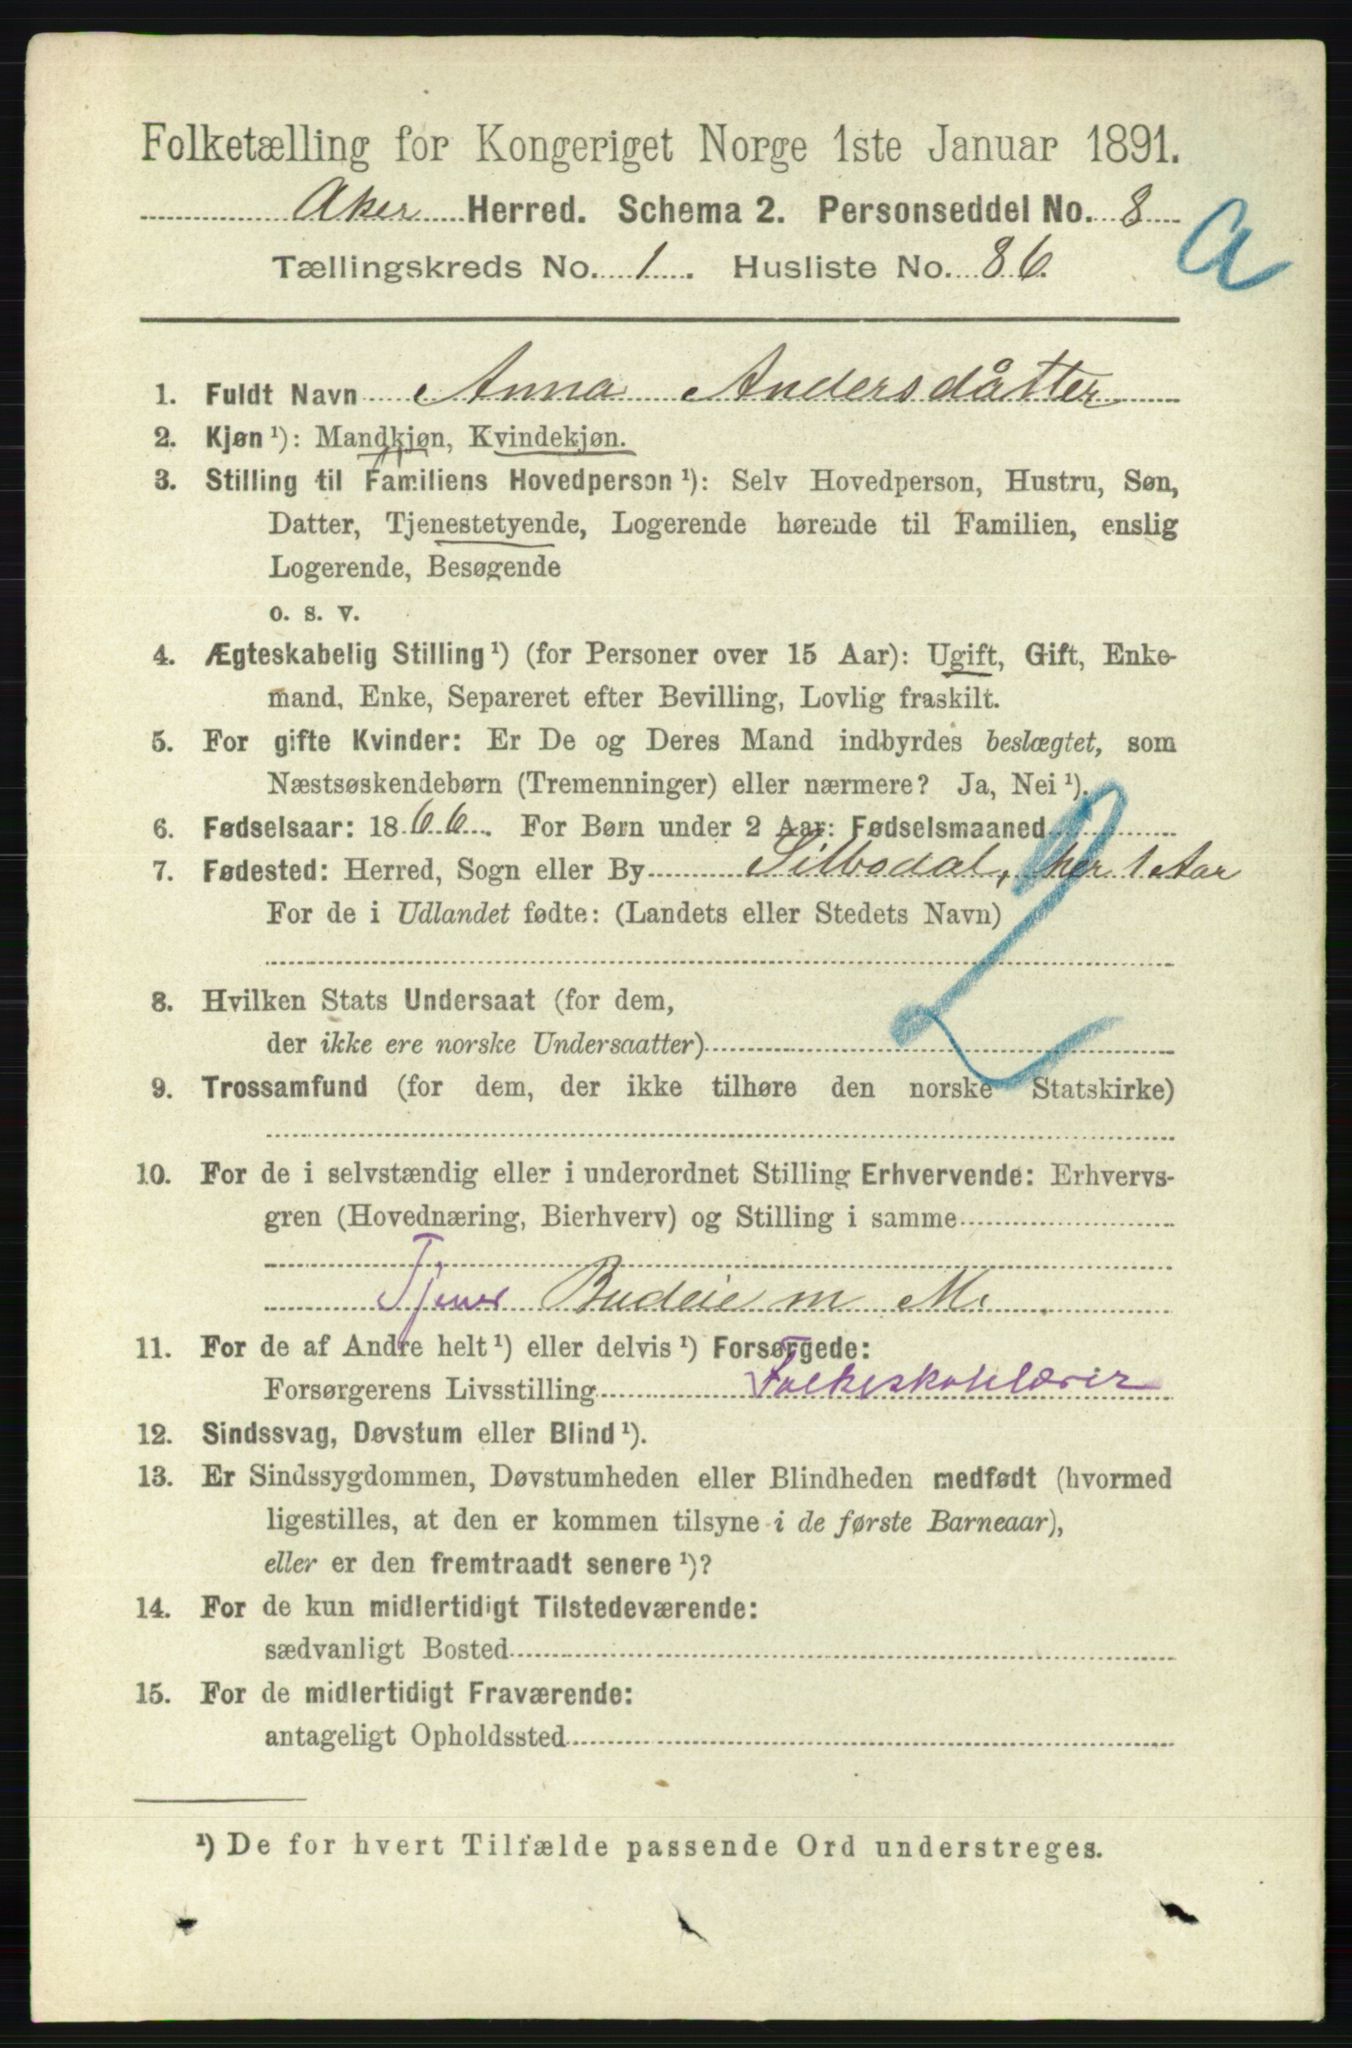 Folketælling for Kongeriget Norge 1ste Januar 1891.
Aker Herred. Schema 2. Personseddel No. 8
a
Tællingskreds No. 1. Husliste No. 86.
1. Fuldt Navn Anna Andersdåtter
2. Kjøn ¹): Mandkjøn, Kvindekjøn.
3. Stilling til Familiens Hovedperson ¹): Selv Hovedperson, Hustru, Søn,
Datter, Tjenestetyende, Logerende hørende til Familien, enslig
Logerende, Besøgende
o. s. v.
4. Ægteskabelig Stilling ¹) (for Personer over 15 Aar): Ugift, Gift, Enke-
mand, Enke, Separeret efter Bevilling, Lovlig fraskilt.
5. For gifte Kvinder: Er De og Deres Mand indbyrdes beslægtet, som
Næstsøskendebørn (Tremenninger) eller nærmere? Ja, Nei ¹).
6. Fødselsaar: 1866. For Børn under 2 Aar: Fødselsmaaned
7. Fødested: Herred, Sogn eller By Silbodal, her 1 Aar
For de i Udlandet fødte: (Landets eller Stedets Navn)
2
8. Hvilken Stats Undersaat (for dem,
der ikke ere norske Undersaatter)
9. Trossamfund (for dem, der ikke tilhøre den norske Statskirke)
10. For de i selvstændig eller i underordnet Stilling Erhvervende: Erhvervs-
gren (Hovednæring, Bierhverv) og Stilling i samme
Budeie m M.
11. For de af Andre helt ¹) eller delvis ¹) Forsørgede:
Forsørgerens Livsstilling
12. Sindssvag, Døvstum eller Blind ¹).
13. Er Sindssygdommen, Døvstumheden eller Blindheden medfødt (hvormed
ligestilles, at den er kommen tilsyne i de første Barneaar),
eller er den fremtraadt senere ¹)?
14. For de kun midlertidigt Tilstedeværende:
sædvanligt Bosted
15. For de midlertidigt Fraværende:
antageligt Opholdssted
¹) De for hvert Tilfælde passende Ord understreges.